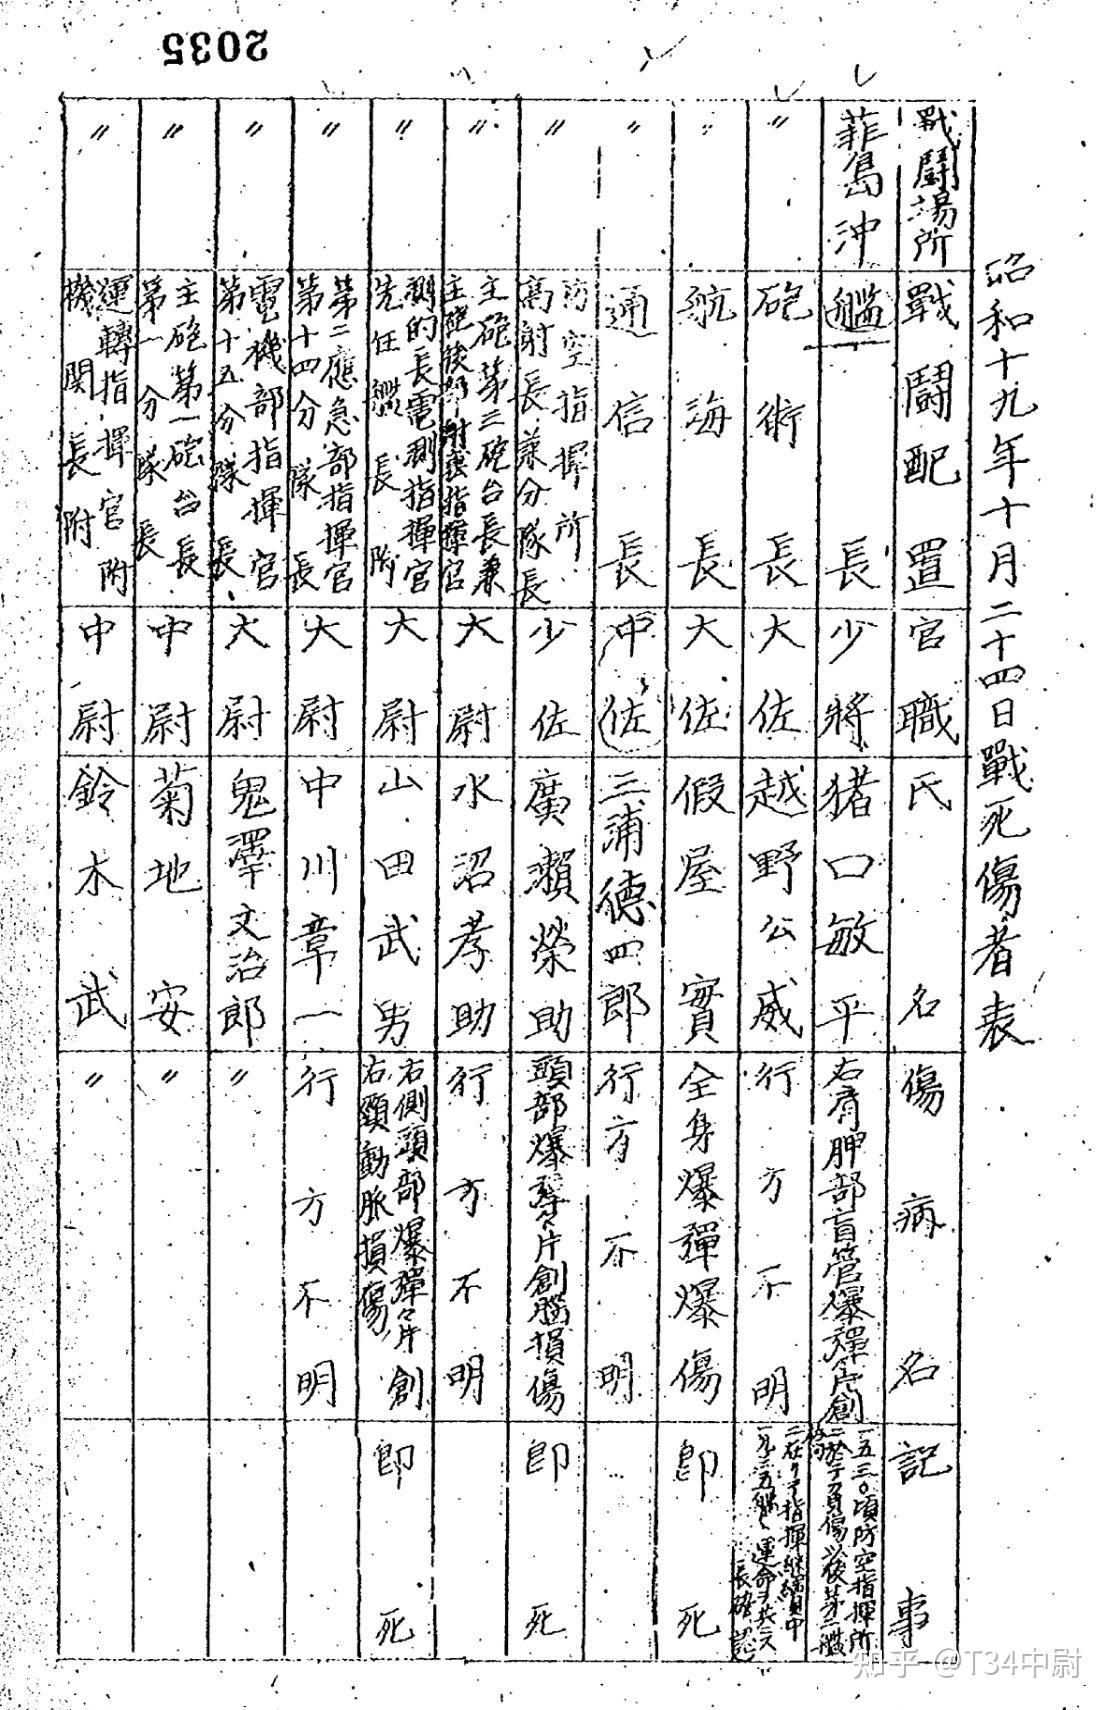 2035
昭和十九年十月二十四日戰死傷者表
戰鬪場所 戰鬪配置 官職 氏名 傷病名 記事
菲島沖 艦長 少將 猪口敏平 右肩胛部盲管爆彈片創
一五三〇頃防空指揮所
ニ於テ負傷以後第二艦橋
〃 砲術長 大佐 越野公威 行方不明
ニ在リテ指揮継續中
運命ヲ共ニス
〃 航海長 大佐 假屋實 全身爆彈爆傷 即死
〃 通信長 中佐 三浦德四郎 行方不明
〃 防空指揮所
高射長兼分隊長 少佐 廣瀨榮助 頭部爆彈々片創腦損傷 即死
〃 主砲第三砲台長兼
主砲後部射撃指揮官 大尉 水沼孝助 行方不明
〃 測的長電測指揮官
先任艦長附 大尉 山田武男 右側頭部爆彈々片創
右頸動脈損傷 即死
〃 第二應急部指揮官
第十四分隊長 大尉 中川章一 行方不明
〃 電機部指揮官
第十五分隊長 大尉 鬼澤文治郎 〃
〃 主砲第一砲台長
第一分隊長 中尉 菊地安 〃
〃 運轉指揮官附
機関長附 中尉 鈴木武 〃
知乎 @T34中尉